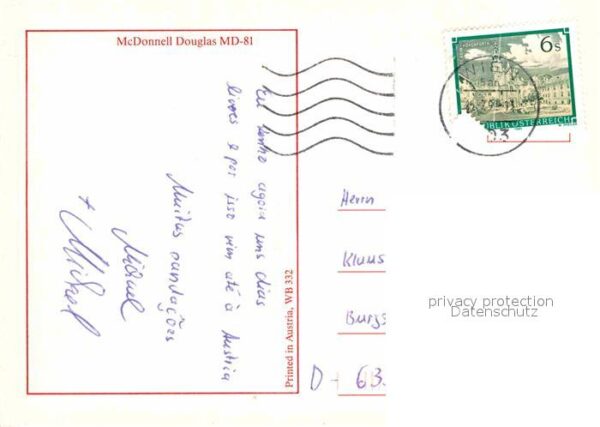 McDonnell Douglas MD-81
Eu tenho agora uns dias
livres e por isso vim até à Austria
Muitas saudações
Michael
+ Michael
Printed in Austria, WB 332
6s
WIEN
REPUBLIK ÖSTERREICH
93
Herrn
Klaus
Burgs
D - 63
privacy protection
Datenschutz